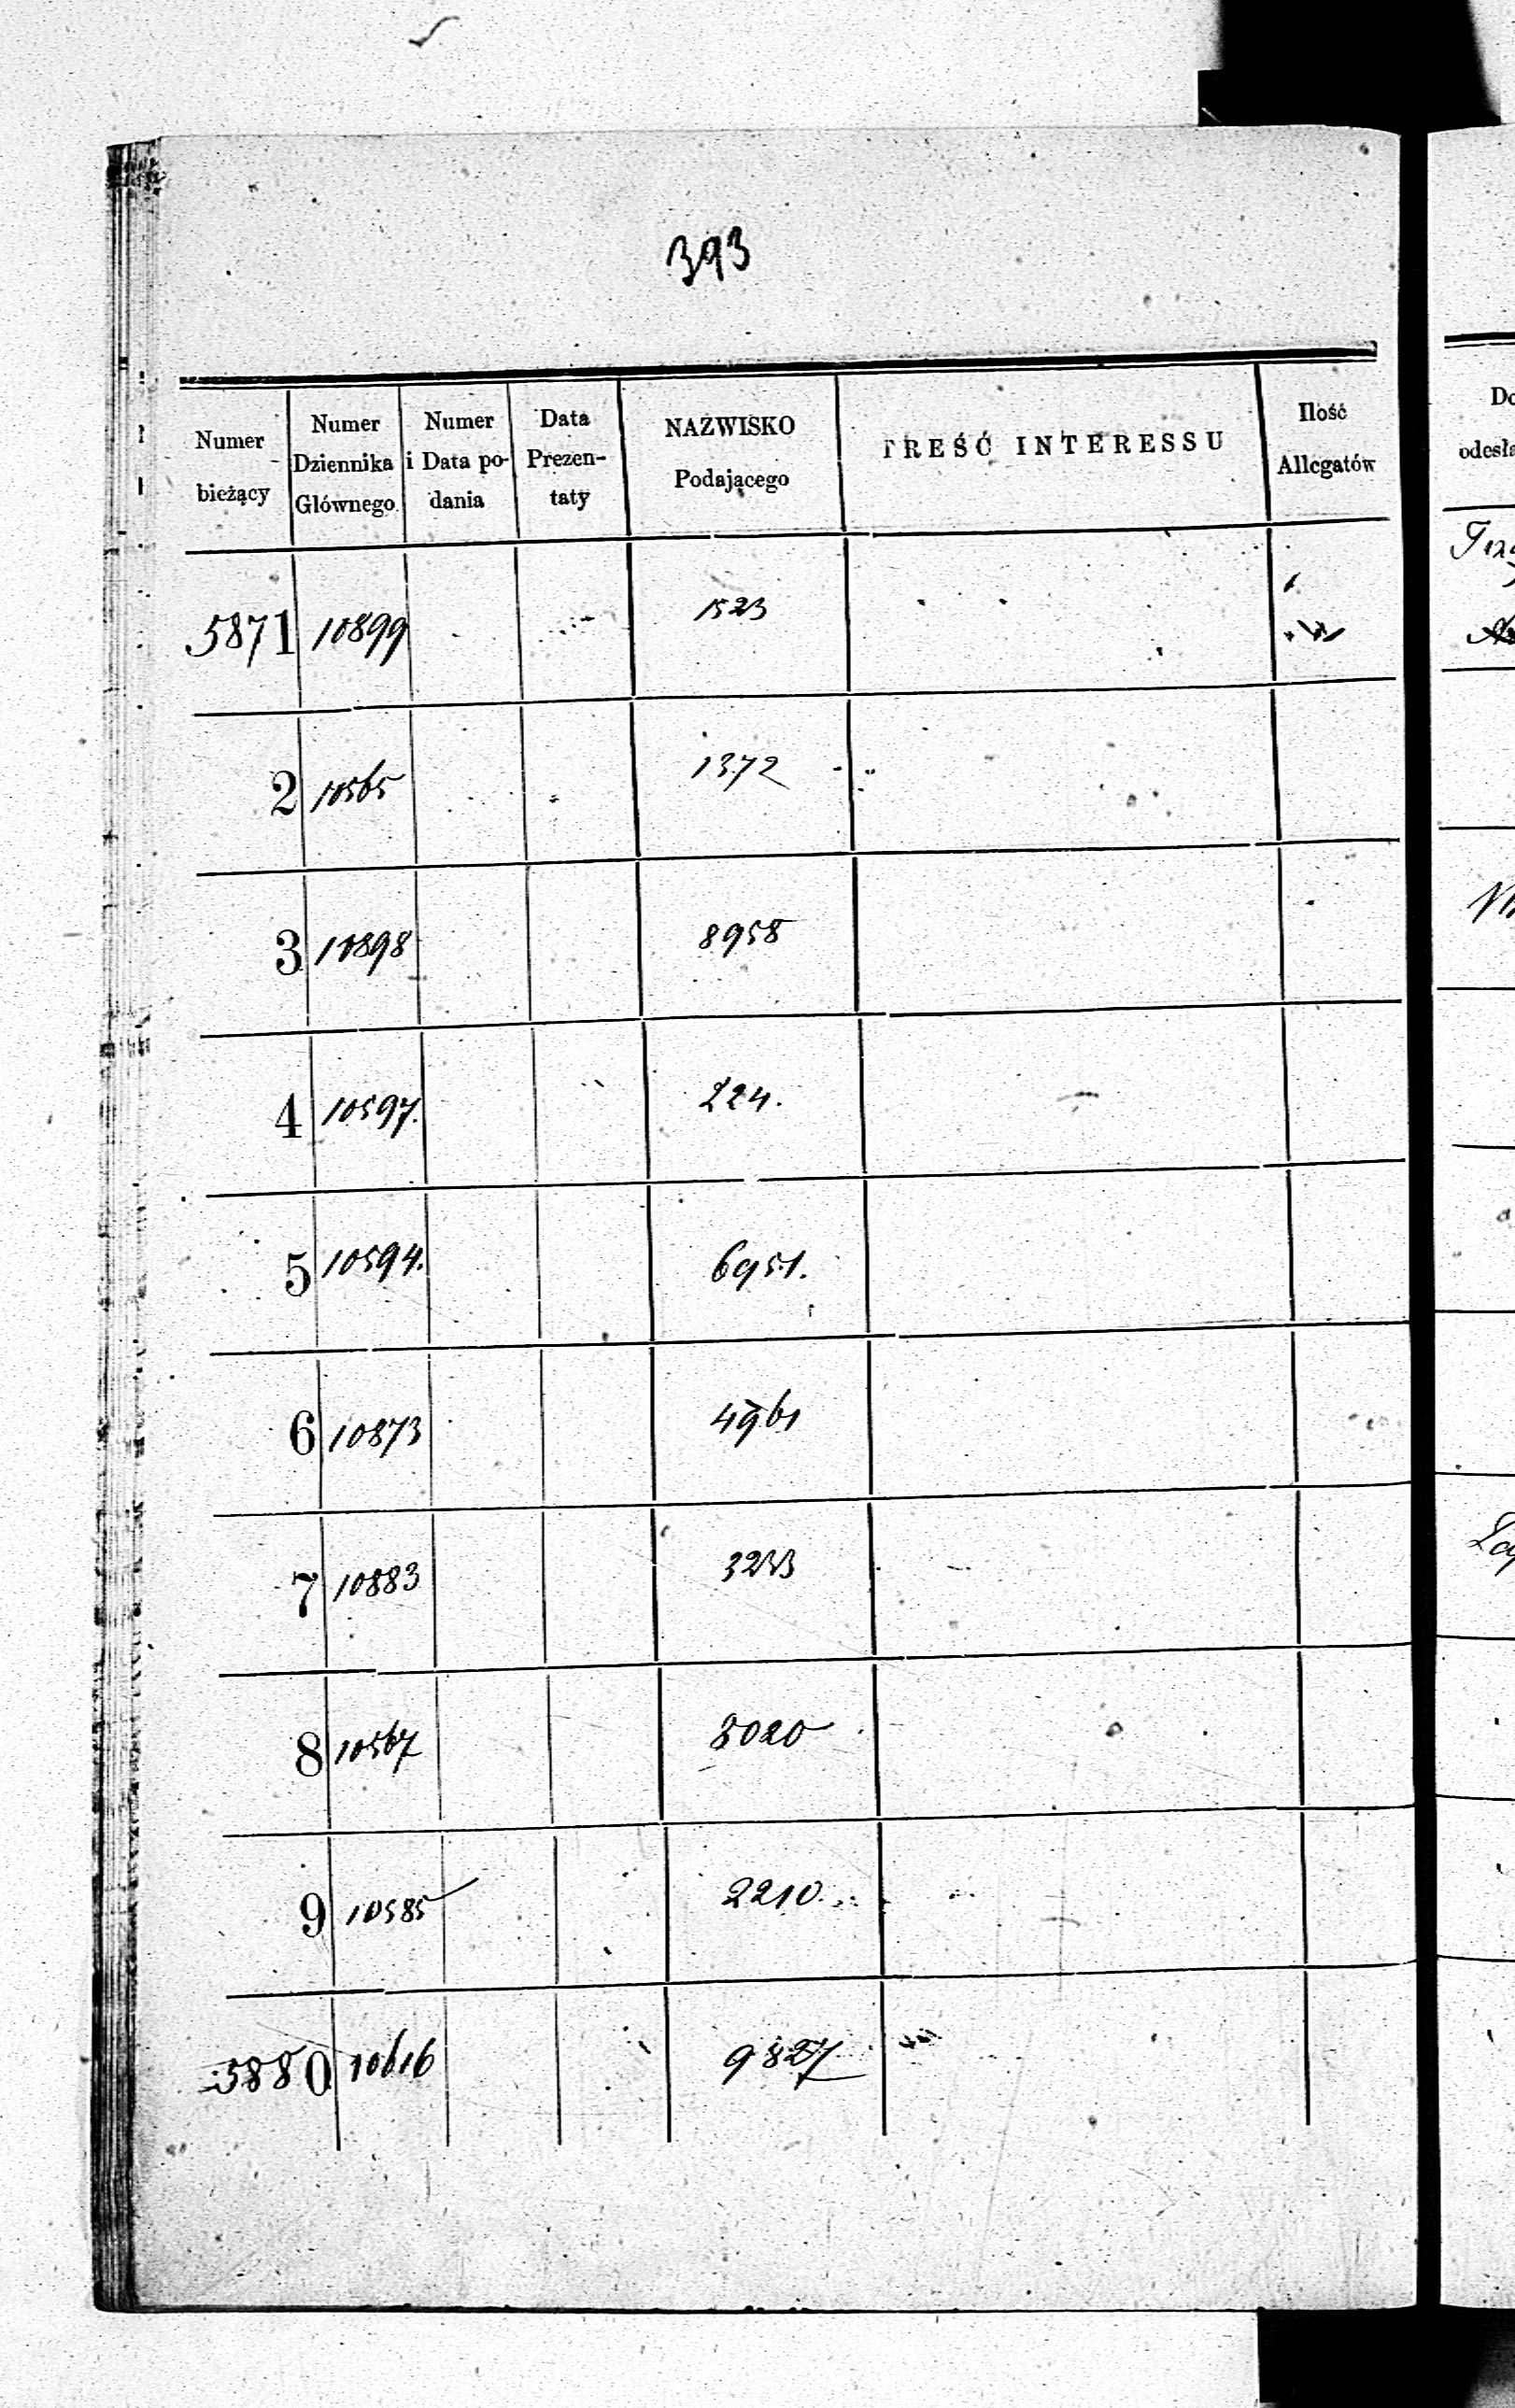 393
Numer bieżący Numer Dziennika Głównego. Numer i Data podania Data Prezentaty NAZWISKO Podającego TREŚĆ INTERESSU Ilość Allegatów
5871 10899 1523
2 10565 1372
3 10898 8958
4 10597. 224.
5 10594. 6951.
6 10873 4961
7 10883 3233
8 10567 8020
9 10585 2210.
5880 10616 9827